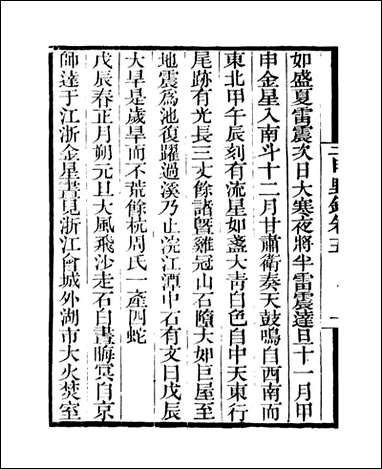 如盛夏雷震次日大寒夜將半雷震達旦十一月甲
申金星入南斗十二月甘肅衛奏天鼓鳴自西南而
東北甲午辰刻有流星如盞大青白色自中天東行
尾跡有光長三丈餘諸暨雞冠山石隨大如巨屋至
地震為池復躍過溪乃止浣江潭中石有文曰戊辰
大旱是歲旱而不荒餘杭周氏一產四蛇
戊辰春正月朔元旦大風飛沙走石白晝晦冥自京
師達于江浙金星晝見浙江會城外湖市大火焚室